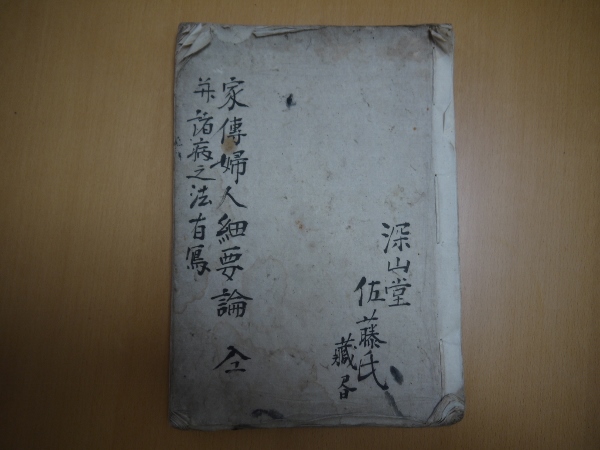 深山堂
佐藤氏
藏書
家傳婦人細要論 全
并諸病之法有寫